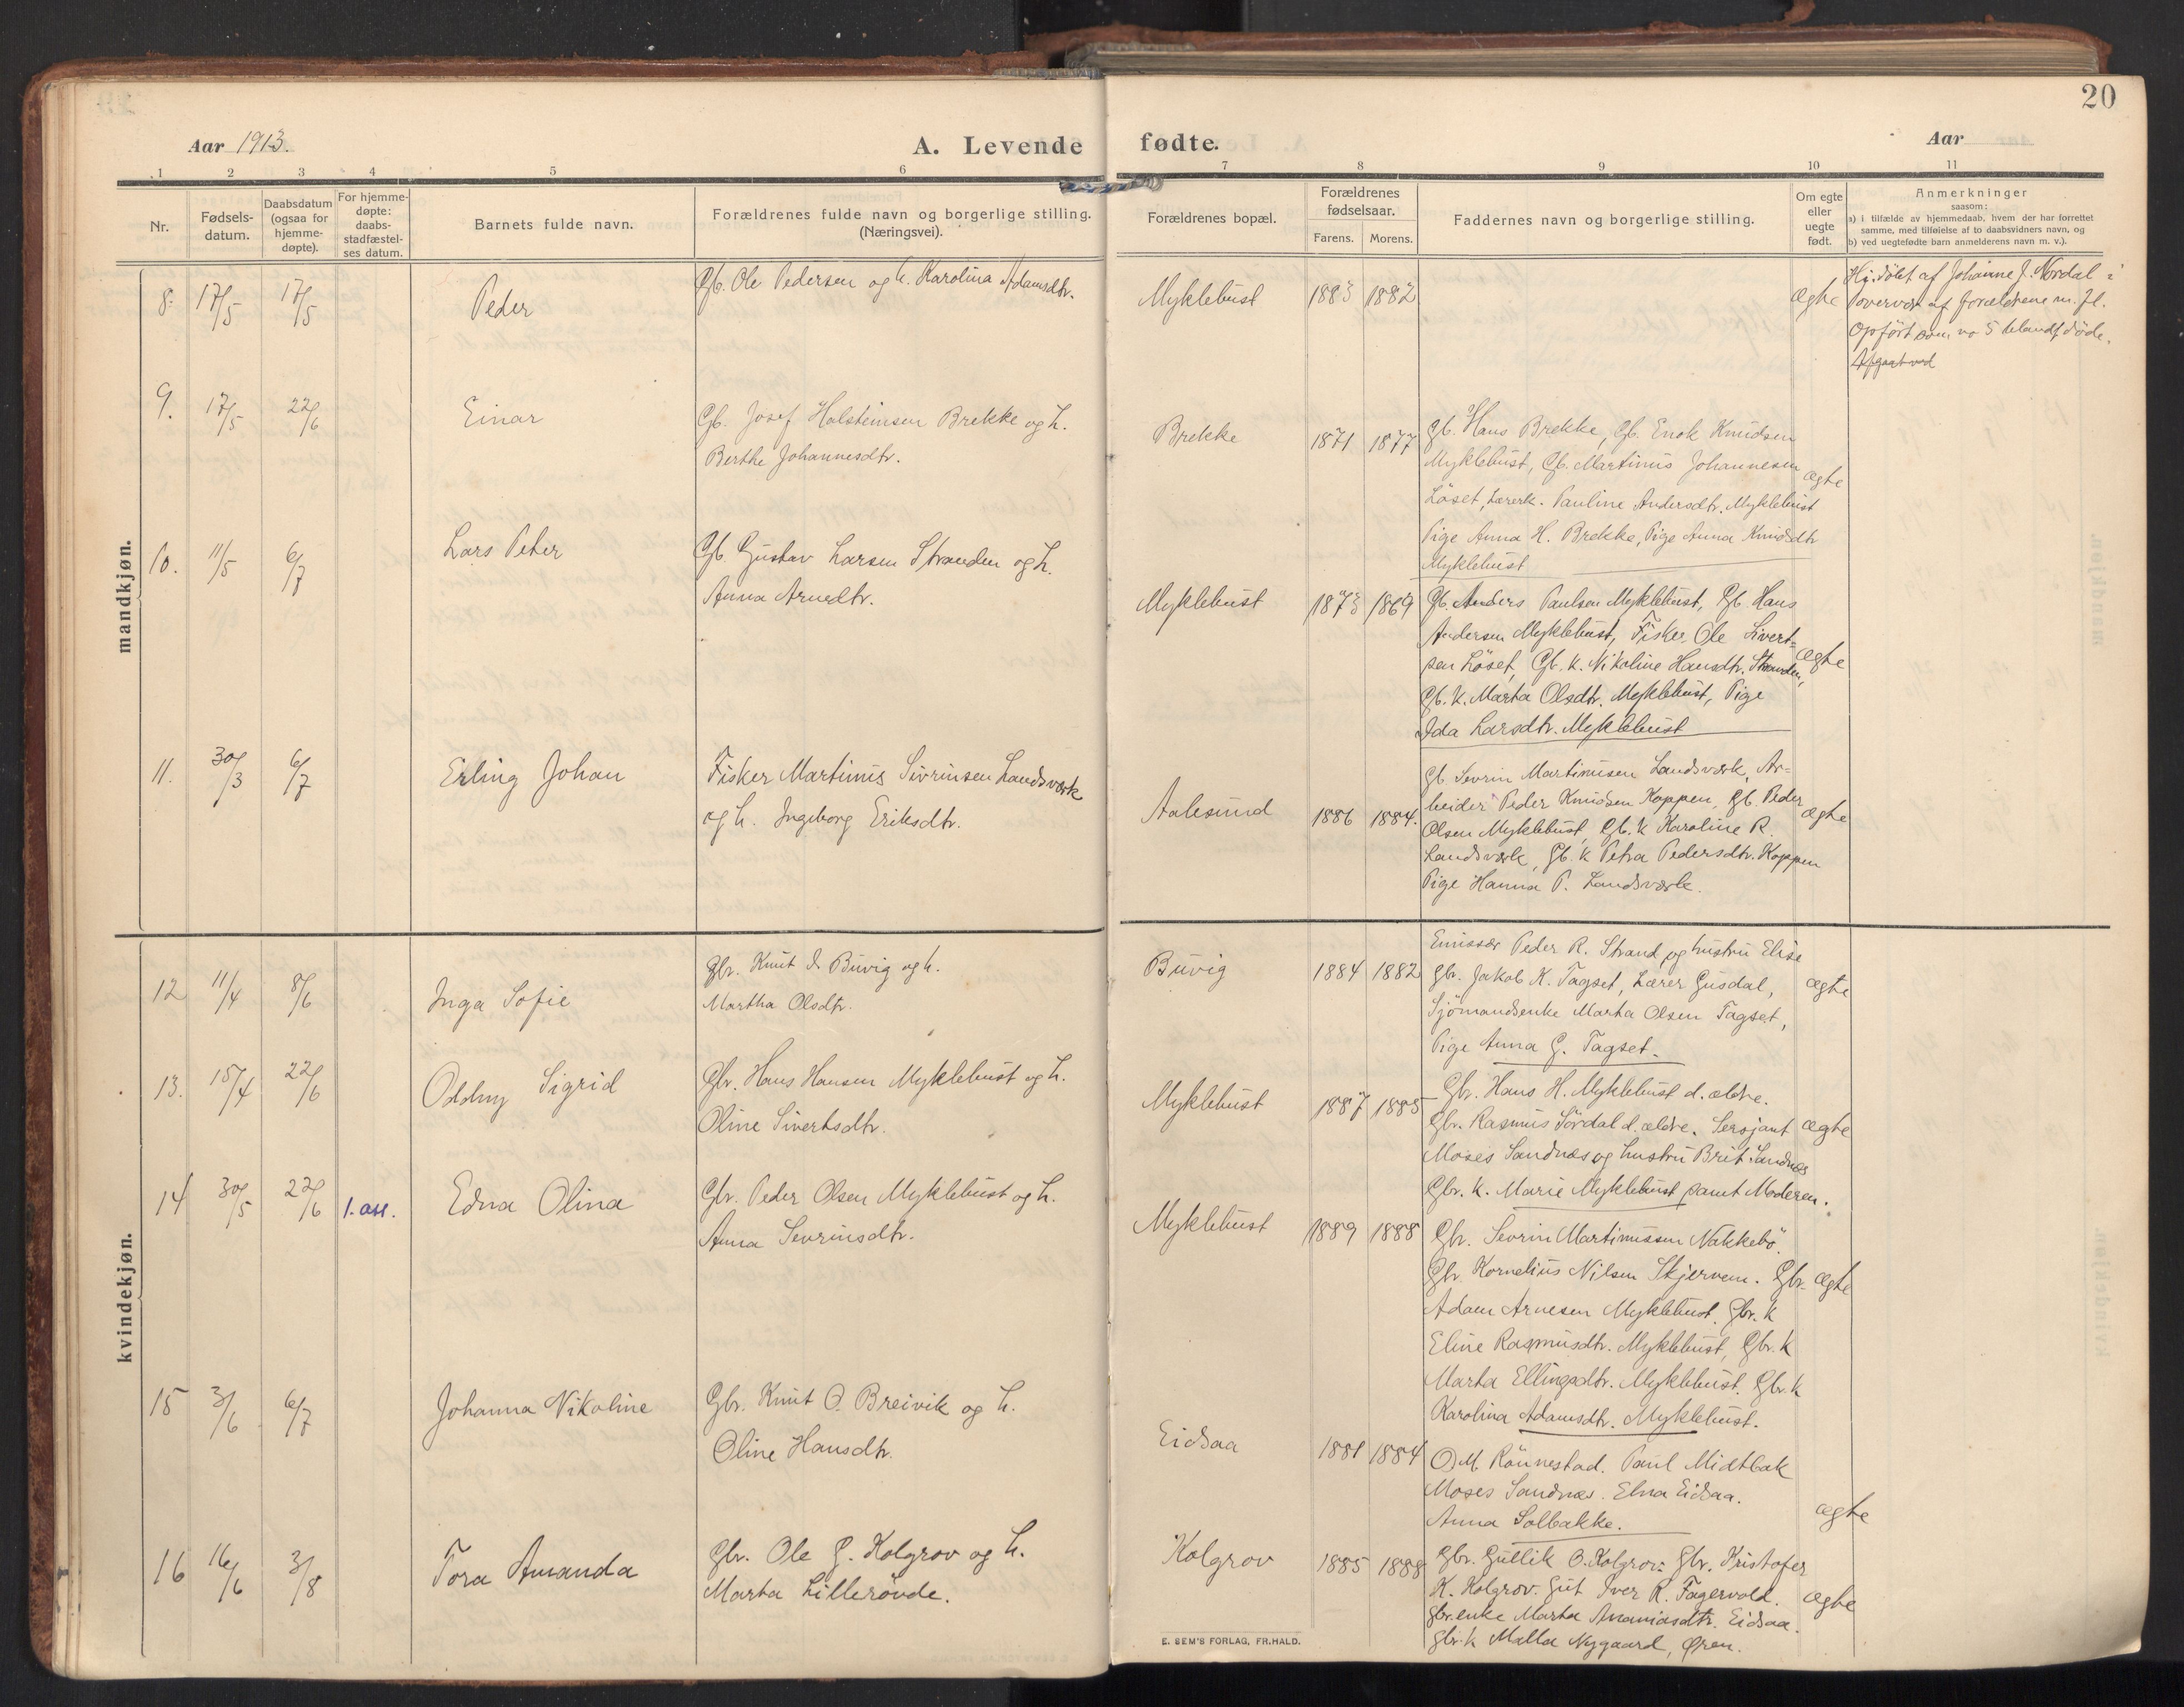 20
Aar 1913.
A. Levende fødte.
Aar
1 2 3 4 5 6 7 8 9 10 11
Nr.
Fødsels-
datum.
Daabsdatum
(ogsaa for
hjemme-
døpte).
For hjemme-
døpte:
daabs-
stadfæstel-
ses datum.
Barnets fulde navn.
Forældrenes fulde navn og borgerlige stilling.
(Næringsvei).
Forældrenes bopæl.
Forældrenes
fødselsaar.
Farens. Morens.
Faddernes navn og borgerlige stilling.
Om egte
eller
uegte
født.
Anmerkninger
saasom:
a) i tilfælde av hjemmedaab, hvem der har forrettet
samme, med tilføielse af to daabsvidners navn, og
b) ved uegtefødte barn anmelderens navn m. v.).
mandkjøn.
8. 17/5 17/5 Peder
Gb. Ole Pedersen og h. Karolina Adamsdtr.
Myklebust 1883 1882 ægte
Hj. döbt af Johanne J. Nordal i
overvær af forældrene m. fl.
Opfört som no 5 blandt döde.
9. 17/5 22/6 Einar
Gb. Josef Holsteinsen Brekke og h.
Berthe Johannesdtr.
Brekke 1871 1877
Gb. Hans Brekke, Gb. Enok Knudsen
Myklebust, Gb. Martinus Johannesen ægte
Löset, Lærerk. Pauline Andersdtr. Myklebust
Pige Anna H. Brekke, Pige Anna Knudsdtr
Myklebust
10. 11/5 6/7 Lars Peter
Gb Gustav Larsen Stranden og h.
Anna Arnedtr.
Myklebust 1873 1869
Gb. Anders Paulsen Myklebust, Gb. Hans
Andersen Myklebust, Fisker Ole Sivert-
sen Löset, Gb. k. Nikoline Hansdtr. Stranden, ægte
Gb. k. Marta Olsdtr. Myklebust, Pige
Ida Larsdtr. Myklebust
11. 30/3 6/7 Erling Johan
Fisker Martinus Sivrinsen Landsværk
og h. Ingeborg Eriksdtr.
Aalesund 1886 1884.
Gb Sevrin Martinusen Landsværk, Ar-
beider Peder Knudsen Koppen, Gb. Peder ægte
Olsen Myklebust, Gb. k Karoline R.
Landsværk, Gb. k Petra Pedersdtr. Koppen
Pige Hanna P. Landsværk.
kvindekjøn.
12 11/4 8/6 Inga Sofie
Gbr. Knut J. Buvig og h.
Martha Olsdtr.
Buvig 1884 1882
Emissær Peder R. Strand og hustru Elise
Gbr. Jakob K. Tagset, Lærer Gusdal, ægte
Sjömandsenke Marta Olsen Tagset,
Pige Anna G. Tagset.
13. 15/4 22/6 Oddny Sigrid
Gbr. Hans Hansen Myklebust og h.
Oline Sivertsdtr.
Myklebust 1887 1885
Gbr. Hans H. Myklebust d. ældre.
Gbr. Rasmus Sördal d. ældre. Sersjant ægte
Moses Sandnæs og hustru Brit Sandnæs
Gbr. k. Marie Myklebust samt Moderen.
14 30/5 22/6 1. att. Edna Olina
Gbr. Peder Olsen Myklebust og h.
Anna Sevrinsdtr.
Myklebust 1889 1888
Gbr. Sevrin Martinussen Nakkebö.
Gbr. Kornelius Nilsen Skjerven. Gbr. ægte
Adam Arnesen Myklebust. Gbr. k
Eline Rasmusdtr. Myklebust, Gbr. k
Marta Ellingsdtr. Myklebust. Gbr. k
Karolina Adamsdtr. Myklebust.
15 3/6 6/7 Johanna Nikoline
Gbr. Knut O. Breivik og h.
Oline Hansdtr.
Eidsaa 1881 1884
O M. Rönnestad. Paul Midtbak
Moses Sandnæs. Elna Eidsaa.
Anna Solbakke. ægte
16 16/6 3/8 Tora Amanda
Gbr. Ole G. Kolgrov og h.
Marta Lillerövde.
Kolgrov 1885 1888
Gbr. Gullik O. Kolgrov. Gbr. Kristofer
K. Kolgrov. Gut Iver R. Fagervold. ægte
Gbr. enke Marta Ananiasdtr. Eidsaa.
Gbr. k Malla Nygaard, Øren.
E. SEM'S FORLAG, FR.HALD.